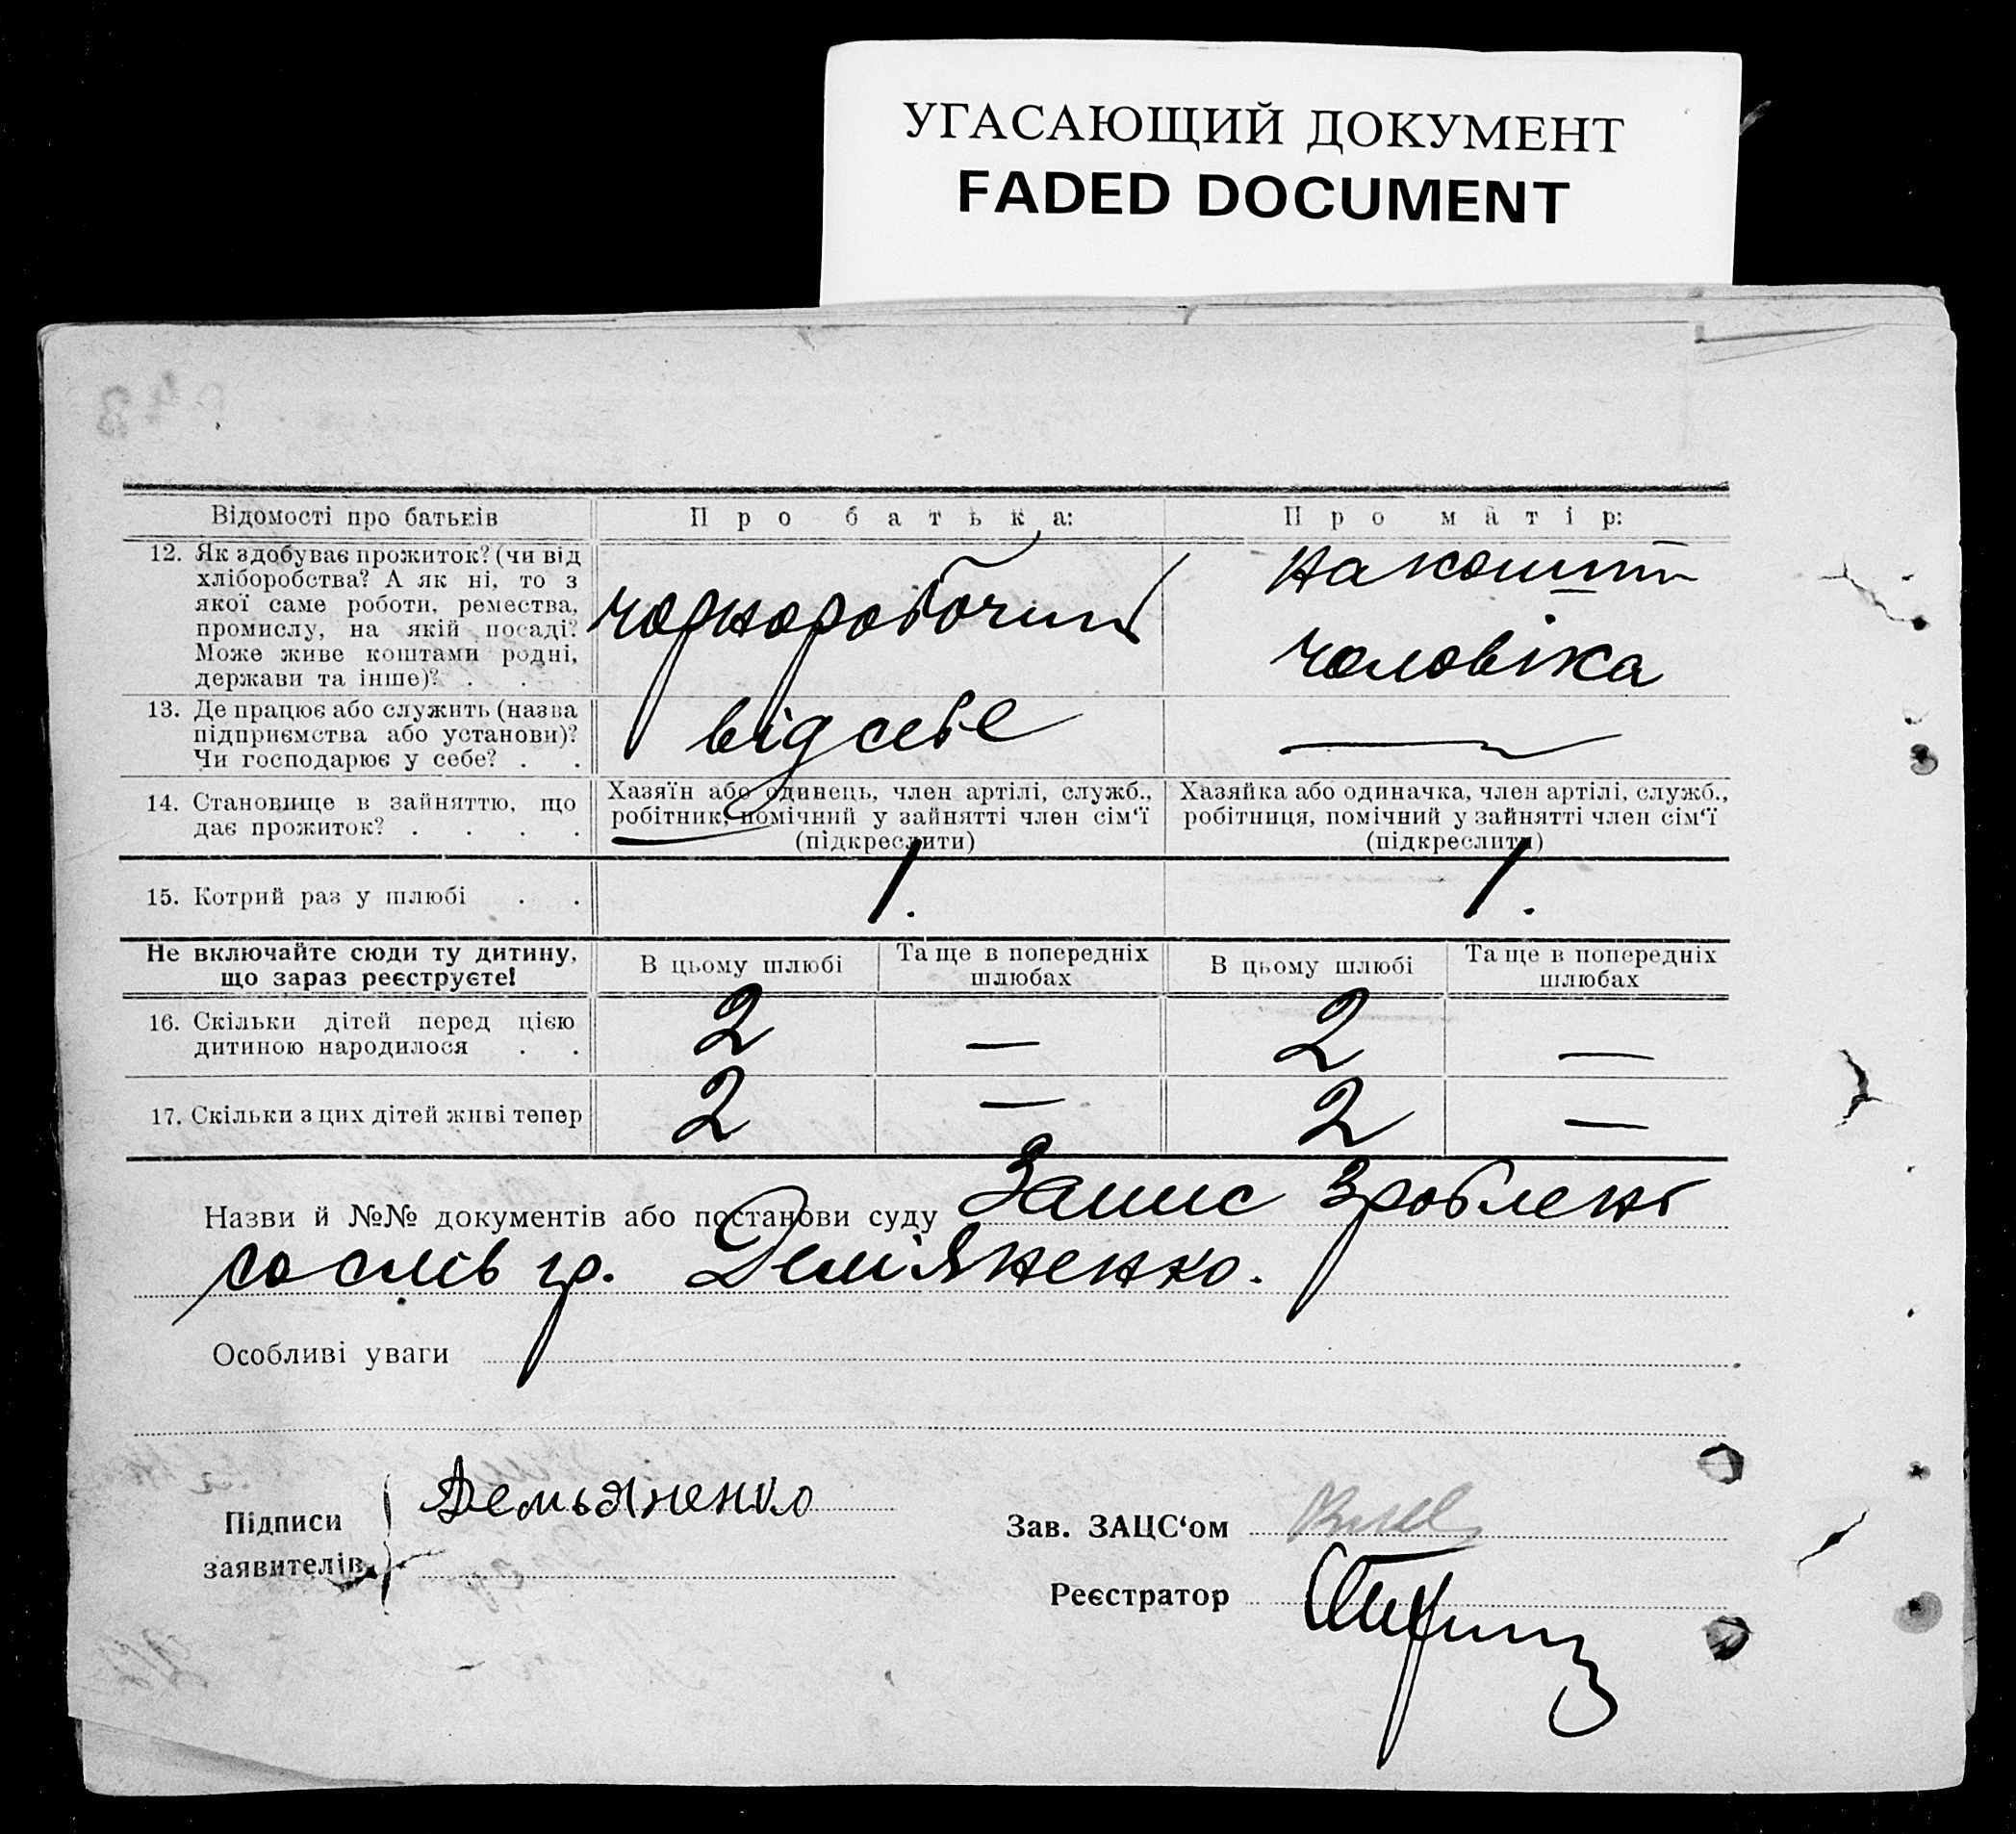 УГАСАЮЩИЙ ДОКУМЕНТ
FADED DOCUMENT
Відомості про батьків
Про батька:
Про матір:
12. Як здобуває прожиток? (чи від
хліборобства? А як ні, то з
якої саме роботи, ремества,
промислу, на якій посаді?
Може живе коштами родні,
держави та інше)? . .
чорноробочий
на кошти
чоловіка
13. Де працює або служить (назва
підприємства або установи)?
Чи господарює у себе? . .
від себе
—
14. Становище в зайняттю, що
дає прожиток? . . . .
Хазяїн або одинець, член артілі, служб.,
робітник, помічний у зайнятті член сім‘ї
(підкреслити)
Хазяйка або одиначка, член артілі, служб.,
робітниця, помічний у зайнятті член сім‘ї
(підкреслити)
15. Котрий раз у шлюбі . .
1.
1.
Не включайте сюди ту дитину,
що зараз реєструєте!
В цьому шлюбі
Та ще в попередніх
шлюбах
В цьому шлюбі
Та ще в попередніх
шлюбах
16. Скільки дітей перед цією
дитиною народилося . .
2
—
2
—
17. Скільки з цих дітей живі тепер
2
—
2
—
Назви й №№ документів або постанови суду Запис зроблено
со слів гр. Дем'яненко.
Особливі уваги
Підписи
заявителів
Демьяненко
Зав. ЗАЦС‘ом
Реєстратор